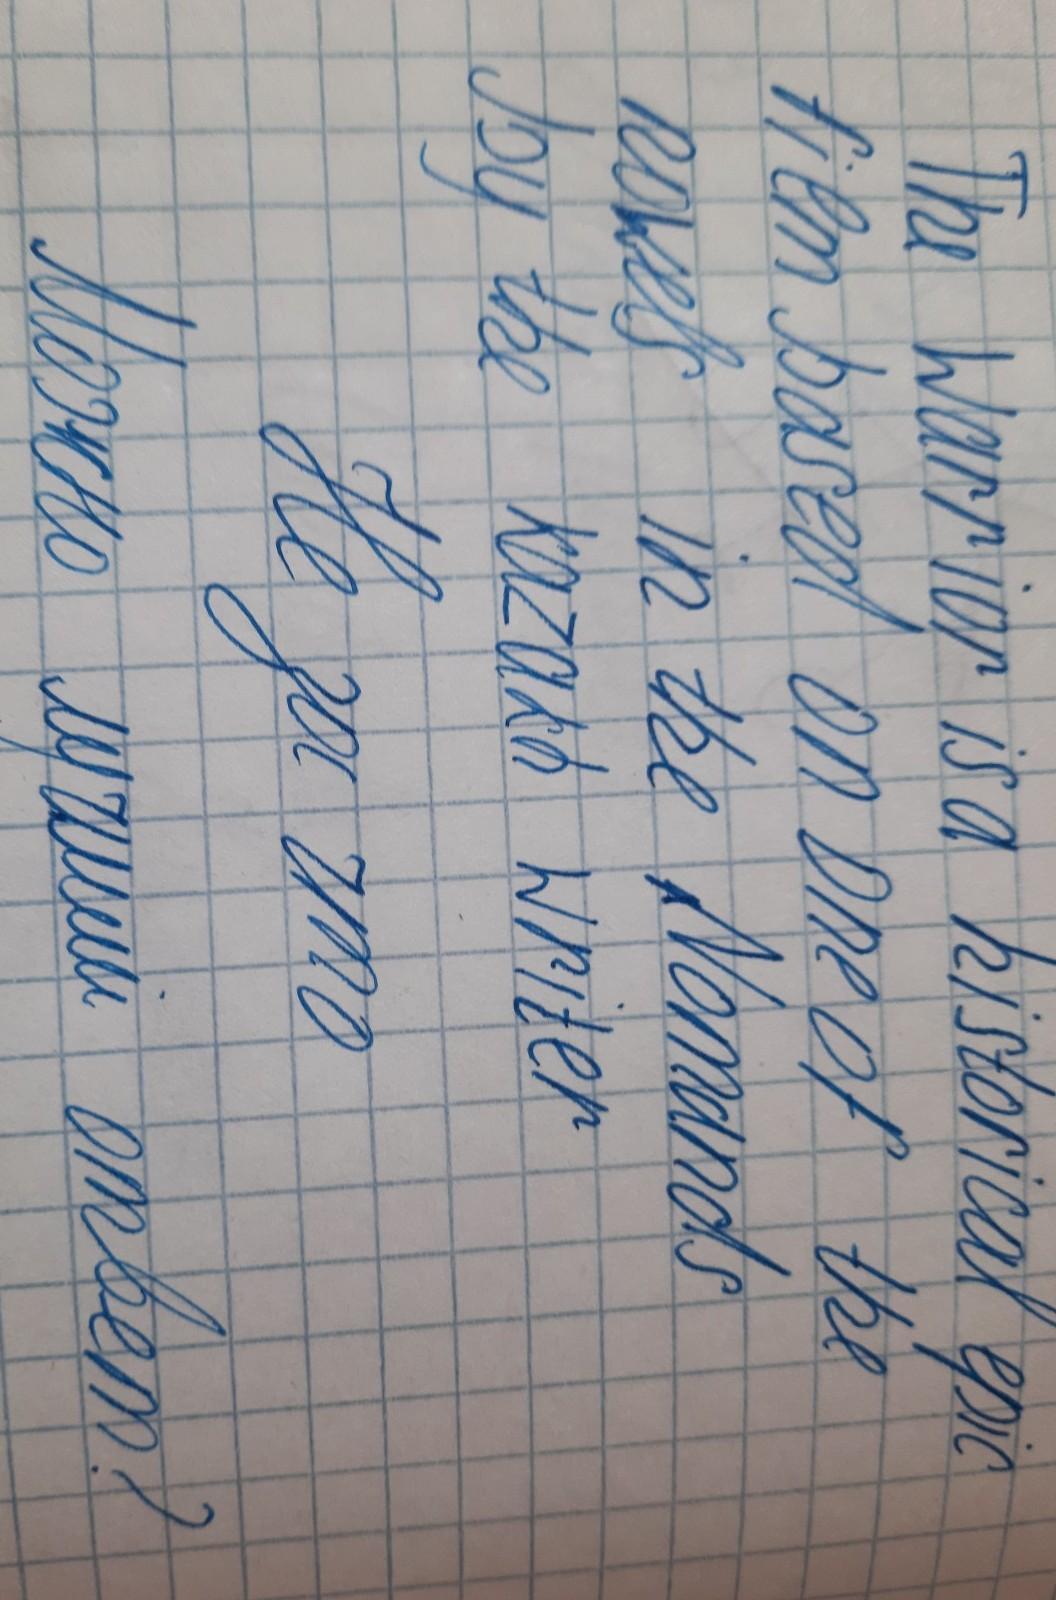 The Warrior is a historical epic
film based on one of the
novels in the Nomands
by the kazakh writer
Я
Не уж это
Можно лучший ответ?